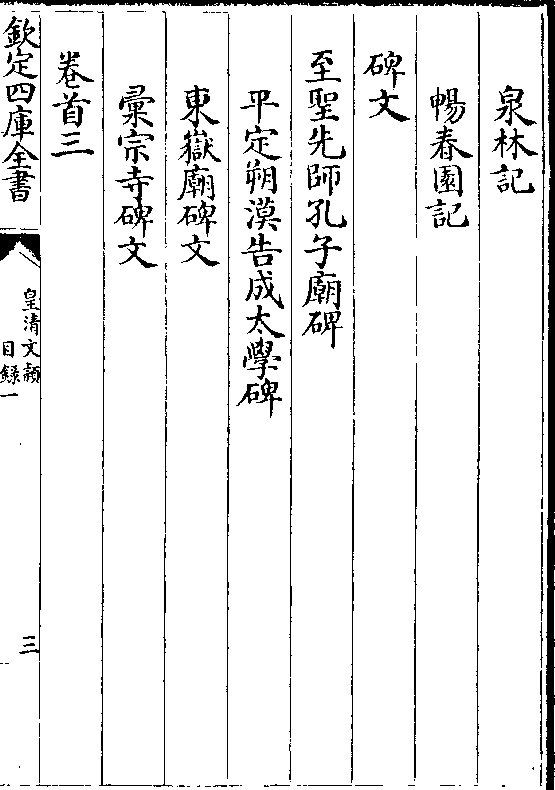 泉林記
暢春園記
碑文
至聖先師孔子廟碑
平定朔漠告成太學碑
東嶽廟碑文
彚宗寺碑文
卷首三
欽定四庫全書
皇清文穎
目錄一
三